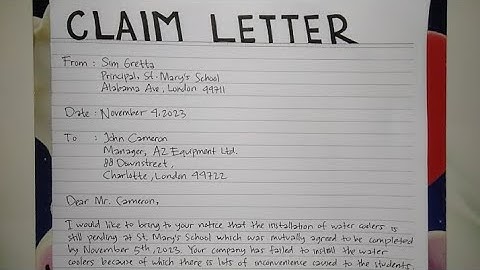 CLAIM LETTER
From : Sim Gretta
Principal, St. Mary's School
Alabama Ave, London 49711
Date : November 4, 2023
To : John Cameron
Manager, A2 Equipment Ltd.
88 Downstreet,
Charlotte, London 49722
Dear Mr. Cameron,
I would like to bring to your notice that the installation of water coolers is
still pending at St. Mary's School which was mutually agreed to be completed
by November 5th, 2023. Your company has failed to install the water
coolers because of which there is lots of inconvenience caused to the students